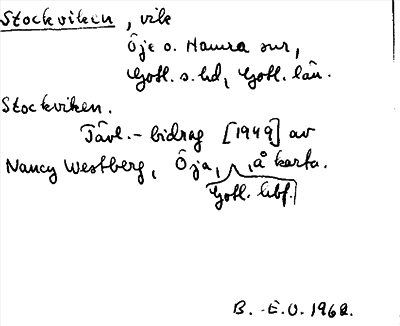 Stockviken, vik
Öja o. Hamra snr,
Gotl. s. hd, Gotl. län.
Stockviken.
Tävl.-bidrag [1949] av
Nancy Westberg, Öja, å karta.
Gotl. hbf.
B. E.O. 1962.